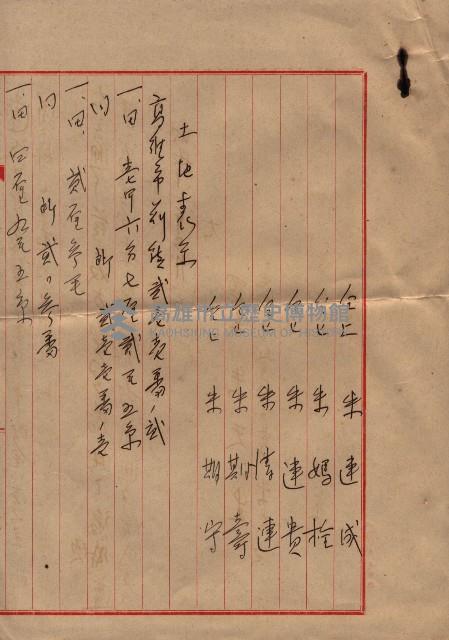 仝上 朱連成
仝上 朱媽栓
仝上 朱連貴
仝上 朱清連
仝上 朱期壽
仝上 朱期守
土地表示
高雄市前鎮貳壱壱番ノ貳
一、田 壱甲六分七厘貳毛五糸
同 所 貳壱壱番ノ壱
一、田、貳厘参毛
同 所 貳〇参番
一、田 四厘九毛五糸
高雄市立歷史博物館
KAOHSIUNG MUSEUM OF HISTORY